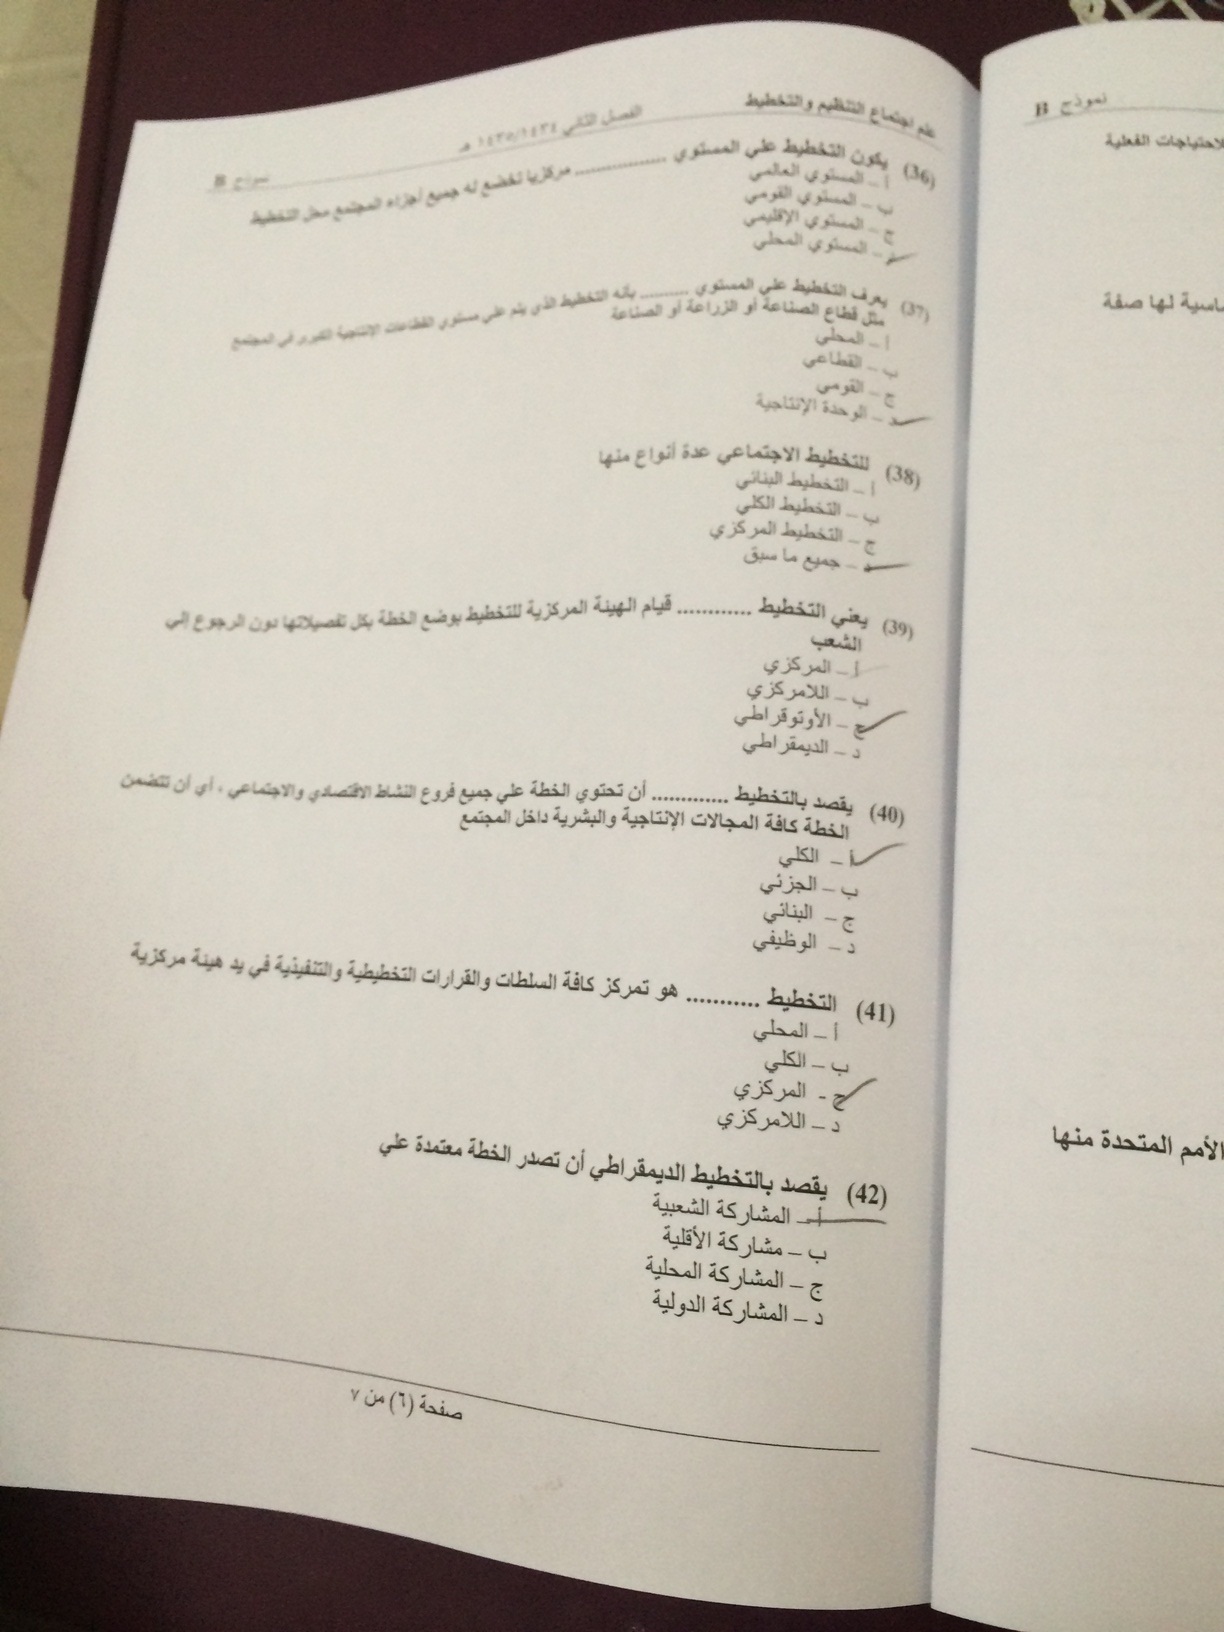 علم اجتماع التنظيم والتخطيط
الفصل الثاني ١٤٣٤/١٤٣٥ هـ
نموذج B
(36) يكون التخطيط علي المستوي ............ مركزيا تخضع له جميع أجزاء المجتمع محل التخطيط
أ – المستوي العالمي
ب – المستوي القومي
ج – المستوي الإقليمي
د – المستوي المحلي
(37) يعرف التخطيط علي المستوي .......... بأنه التخطيط الذي يتم علي مستوي القطاعات الإنتاجية الكبرى في المجتمع
مثل قطاع الصناعة أو الزراعة أو الصناعة
أ – المحلي
ب – القطاعي
ج – القومي
د – الوحدة الإنتاجية
(38) للتخطيط الاجتماعي عدة أنواع منها
أ – التخطيط البنائي
ب – التخطيط الكلي
ج – التخطيط المركزي
د – جميع ما سبق
(39) يعني التخطيط ............ قيام الهيئة المركزية للتخطيط بوضع الخطة بكل تفصيلاتها دون الرجوع إلي
الشعب
أ – المركزي
ب – اللامركزي
ج – الأوتوقراطي
د – الديمقراطي
(40) يقصد بالتخطيط ............ أن تحتوي الخطة علي جميع فروع النشاط الاقتصادي والاجتماعي ، أي أن تتضمن
الخطة كافة المجالات الإنتاجية والبشرية داخل المجتمع
أ – الكلي
ب – الجزئي
ج – البنائي
د – الوظيفي
(41) التخطيط ........... هو تمركز كافة السلطات والقرارات التخطيطية والتنفيذية في يد هيئة مركزية
أ – المحلي
ب – الكلي
ج - المركزي
د – اللامركزي
(42) يقصد بالتخطيط الديمقراطي أن تصدر الخطة معتمدة علي
أ – المشاركة الشعبية
ب – مشاركة الأقلية
ج – المشاركة المحلية
د – المشاركة الدولية
صفحة (٦) من ٧
نموذج B
الاحتياجات الفعلية
لها صفة
الأمم المتحدة منها